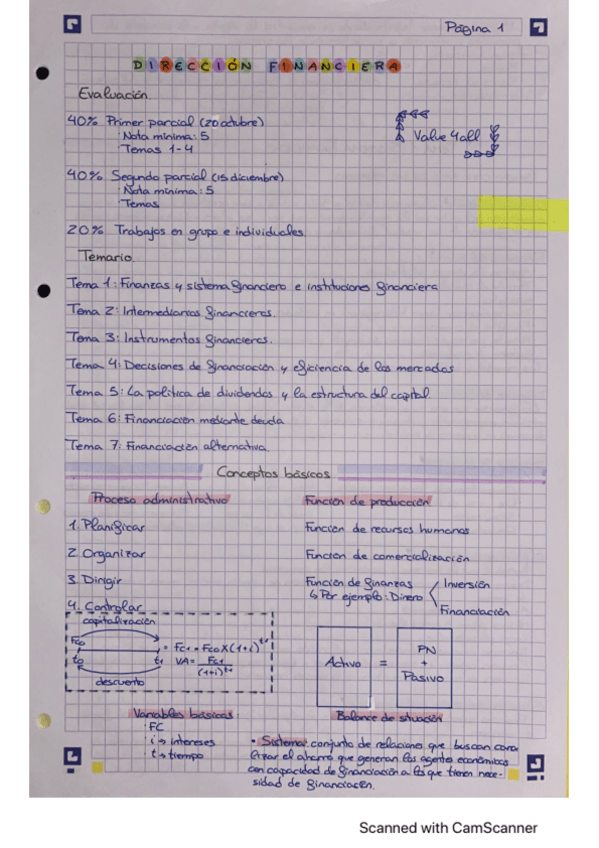 Página 1
DIRECCIÓN FINANCIERA
Evaluación.
40% Primer parcial (20 octubre)
· Nota mínima: 5
· Temas 1-4
Value 4all
40% Segundo parcial (15 diciembre)
· Nota mínima: 5
· Temas
20% Trabajos en grupo e individuales.
Temario.
Tema 1: Finanzas y sistema financiero e instituciones financiera
Tema 2: Intermediarios financieros.
Tema 3: Instrumentos financieros.
Tema 4: Decisiones de financiación y eficiencia de los mercados
Tema 5: La política de dividendos y la estructura del capital.
Tema 6: Financiación mediante deuda
Tema 7: Financiación alternativa.
Conceptos básicos
Proceso administrativo
1. Planificar
2. Organizar
3. Dirigir
4. Controlar
Función de producción
Función de recursos humanos
Función de comercialización
Función de finanzas
↳ Por ejemplo: Dinero
Inversión
Financiación
capitalización
FC0
t0 t1
descuento
= FC1 = FC0 x (1+i)^t1
VA = FC1 / (1+i)^t1
Activo = PN + Pasivo
Variables básicas:
· FC
· i → intereses
· t → tiempo
Balance de situación
• Sistema: conjunto de relaciones que buscan cana
lizar el ahorro que generan los agentes económicos
con capacidad de financiación a los que tienen nece-
sidad de financiación.
Scanned with CamScanner